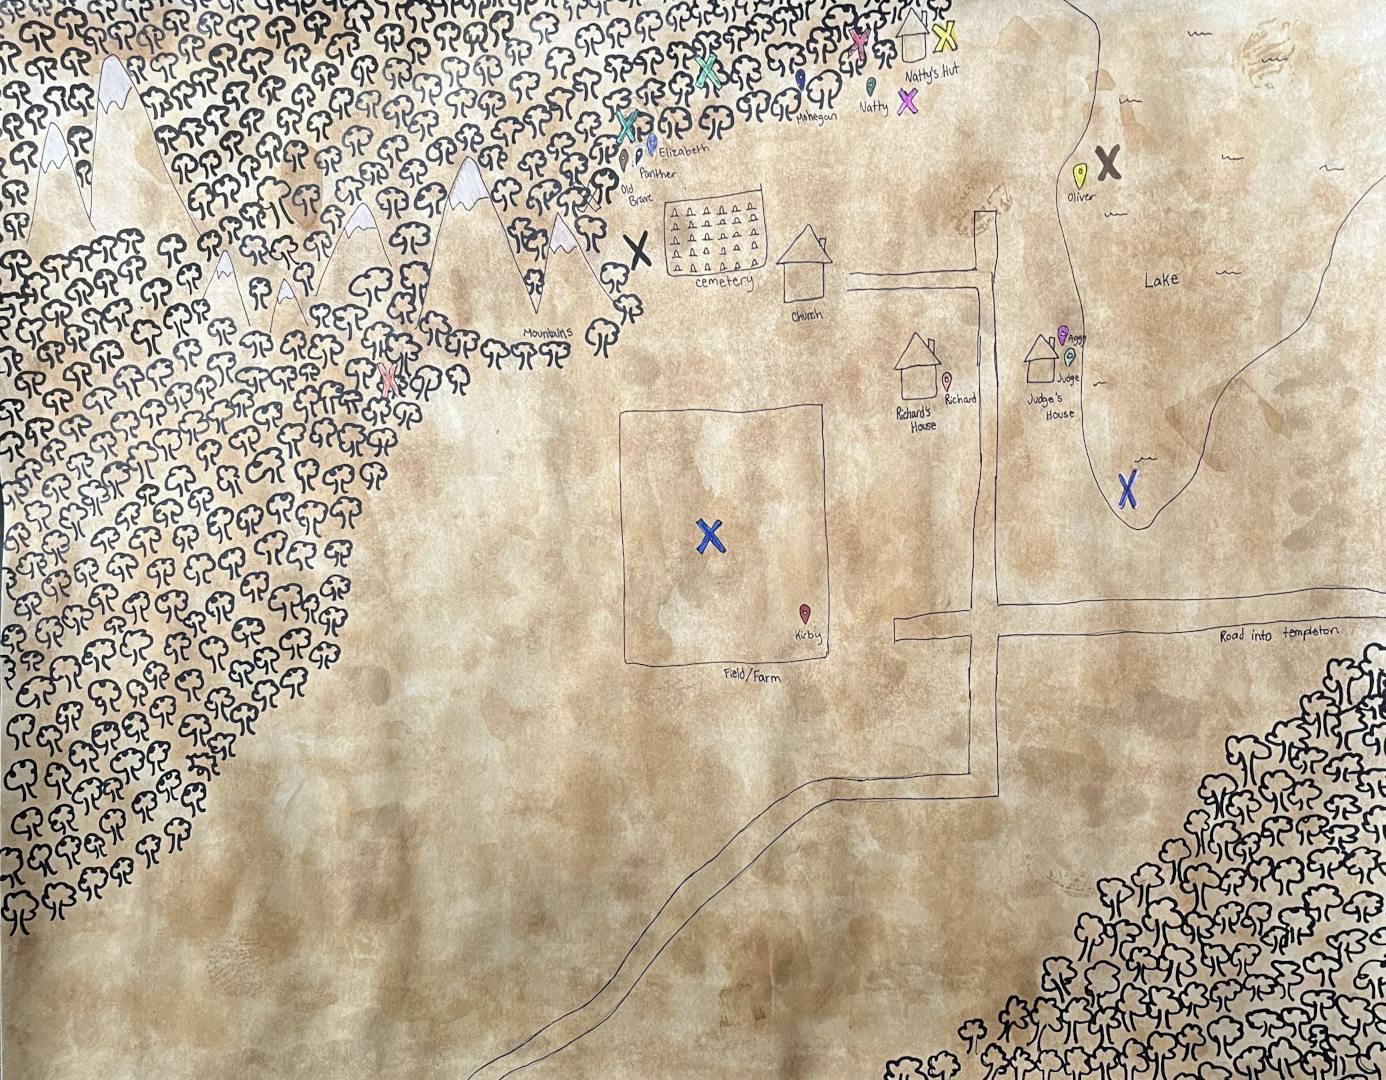 Natty's Hut
Natty
Mohegan
Elizabeth
Panther
Old
Brave
Oliver
cemetery
Church
Lake
Mountains
Aggy
Judge
Judge's
House
Richard
Richard's
House
Kirby
Field/Farm
Road into templeton